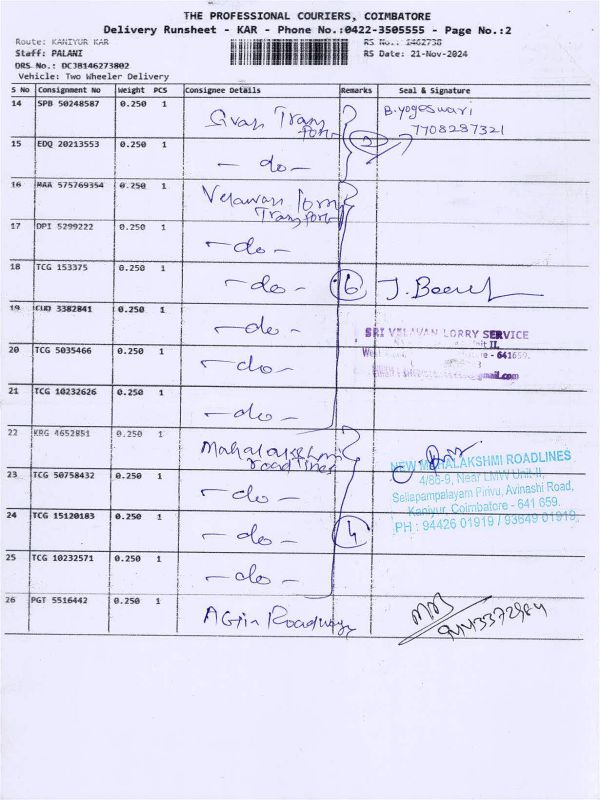 THE PROFESSIONAL COURIERS, COIMBATORE
Delivery Runsheet - KAR - Phone No.:0422-3505555 - Page No.:2
Route: KANIYUR KAR
RS No.: 1462738
Staff: PALANI
RS Date: 21-Nov-2024
DRS No.: DCJB146273802
Vehicle: Two Wheeler Delivery
S No Consignment No Weight PCS Consignee Details Remarks Seal & Signature
14 SPB 50248587 0.250 1 B.yogeswari
7708287321
15 EDQ 20213553 0.250 1 - do -
16 MAA 575769354 0.250 1
17 DPI 5299222 0.250 1 - do -
18 TCG 153375 0.250 1 - do - 6
19 3382841 0.250 1 - do -
SRI VELAVAN LORRY SERVICE
- 641659.
20 TCG 5035466 0.250 1 - do -
21 TCG 10232626 0.250 1 - do -
22 KRG 4652851 0.250 1 Mahalakshmi roadlines
NEW MAHALAKSHMI ROADLINES
4/86-9, Near LMW Unit-II,
Sellapampalayam Pirivu, Avinashi Road,
Kaniyur, Coimbatore - 641 659.
PH : 94426 01919 / 93649 01919
23 TCG 50758432 0.250 1 - do -
24 TCG 15120183 0.250 1 - do - 4
25 TCG 10232571 0.250 1 - do -
26 PGT 5516442 0.250 1